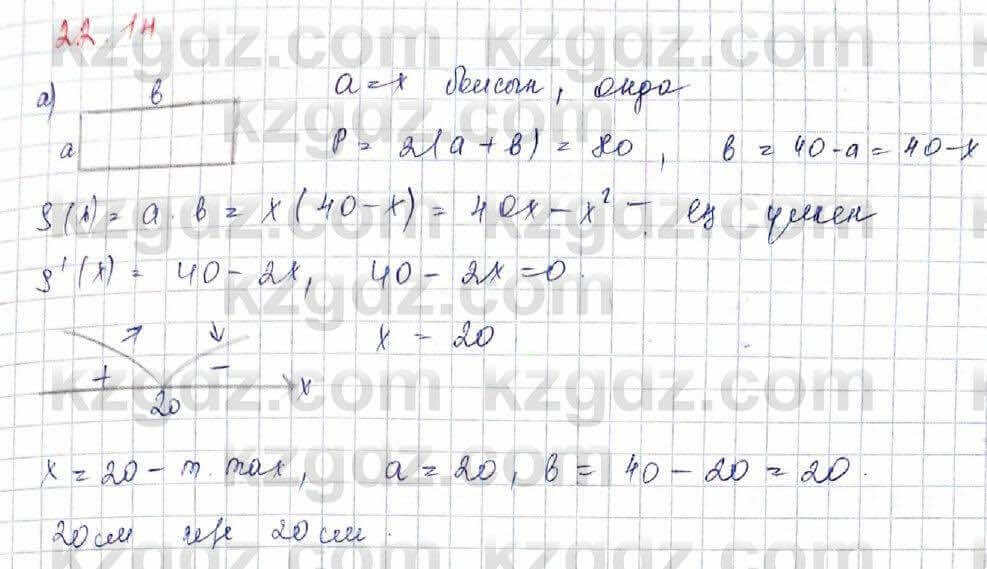 22.14
а) в a=x болсын, онда
a P = 2(a + в) = 80, в = 40-a = 40-x
S(x) = a · в = x(40-x) = 40x - x² - ең үлкен
S'(x) = 40 - 2x, 40 - 2x = 0.
↗ ↘ x = 20
+ - x
20
x = 20 - т. max, a = 20, в = 40 - 20 = 20.
20см және 20см.
kzgdz.com